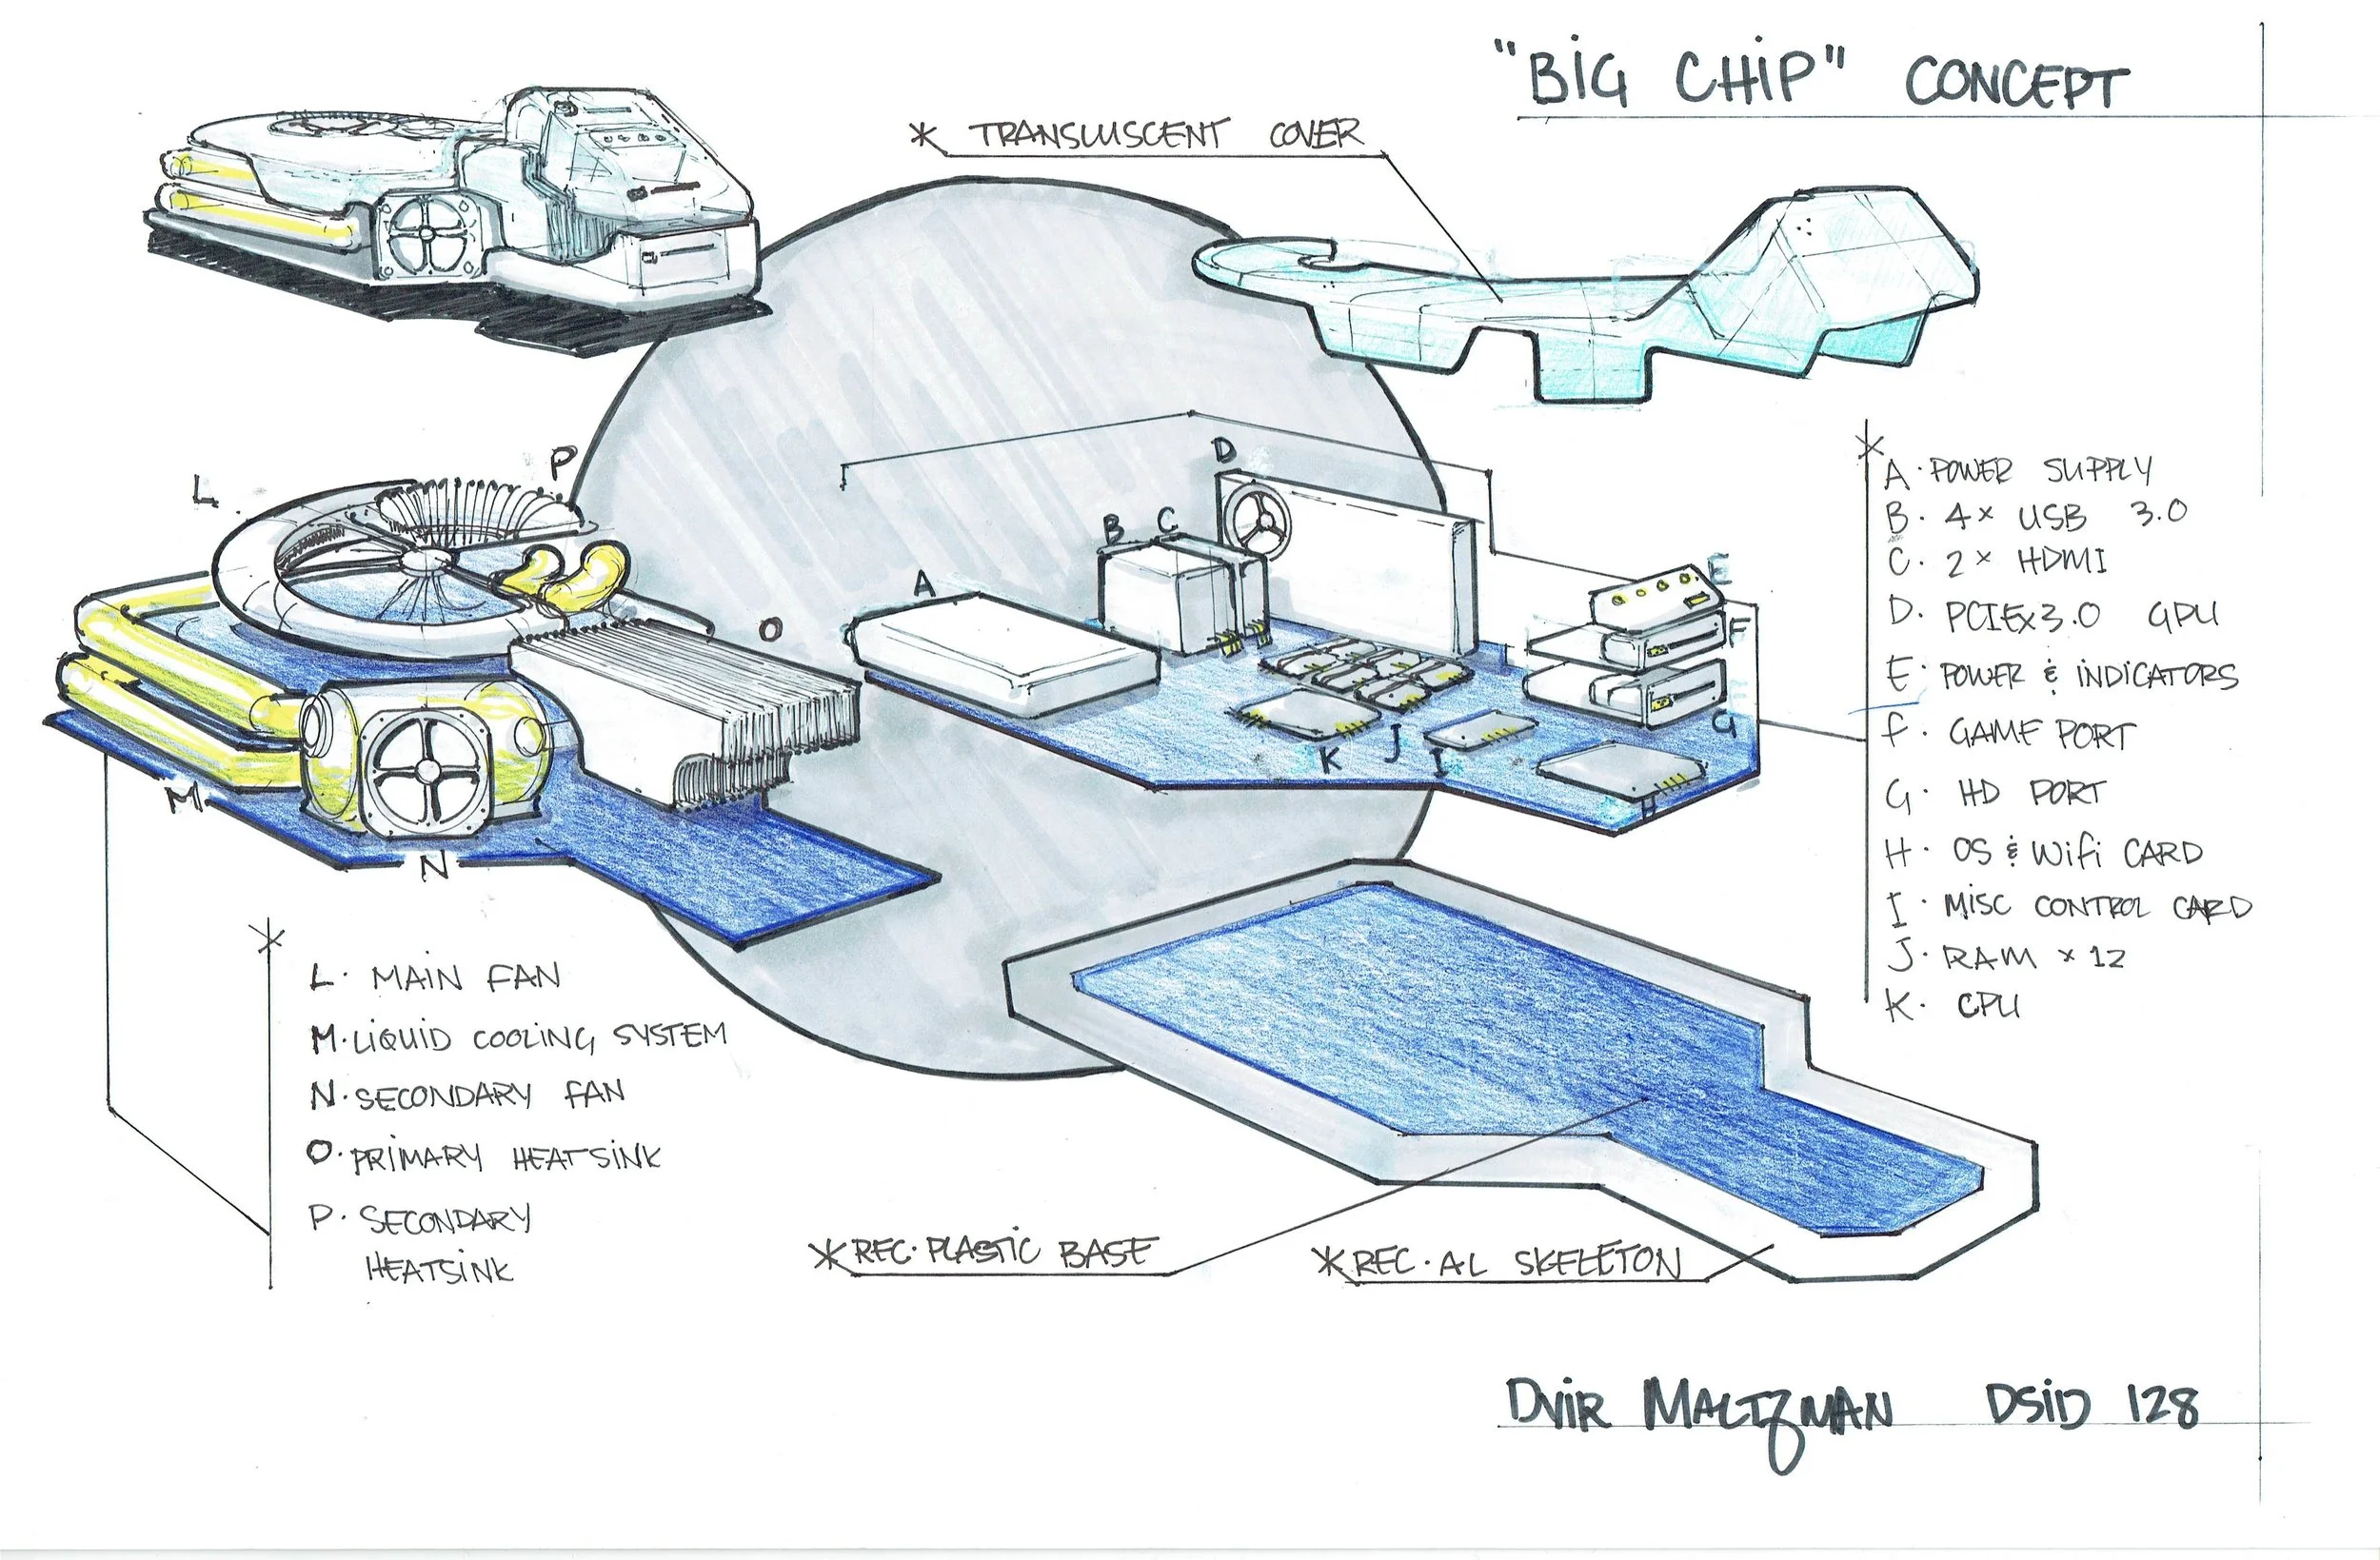 "BIG CHIP" CONCEPT
* TRANSLUSCENT COVER
L
P
D
B C
A
E
O
F
G
K J I
H
M
N
* A. POWER SUPPLY
B. 4x USB 3.0
C. 2x HDMI
D. PCIEx3.0 GPU
E. POWER & INDICATORS
F. GAME PORT
G. HD PORT
H. OS & WiFi CARD
I. MISC CONTROL CARD
J. RAM x 12
K. CPU
* L. MAIN FAN
M. LIQUID COOLING SYSTEM
N. SECONDARY FAN
O. PRIMARY HEATSINK
P. SECONDARY
HEATSINK
* REC. PLASTIC BASE
* REC. AL SKELETON
DVIR MALTZMAN DSID 128